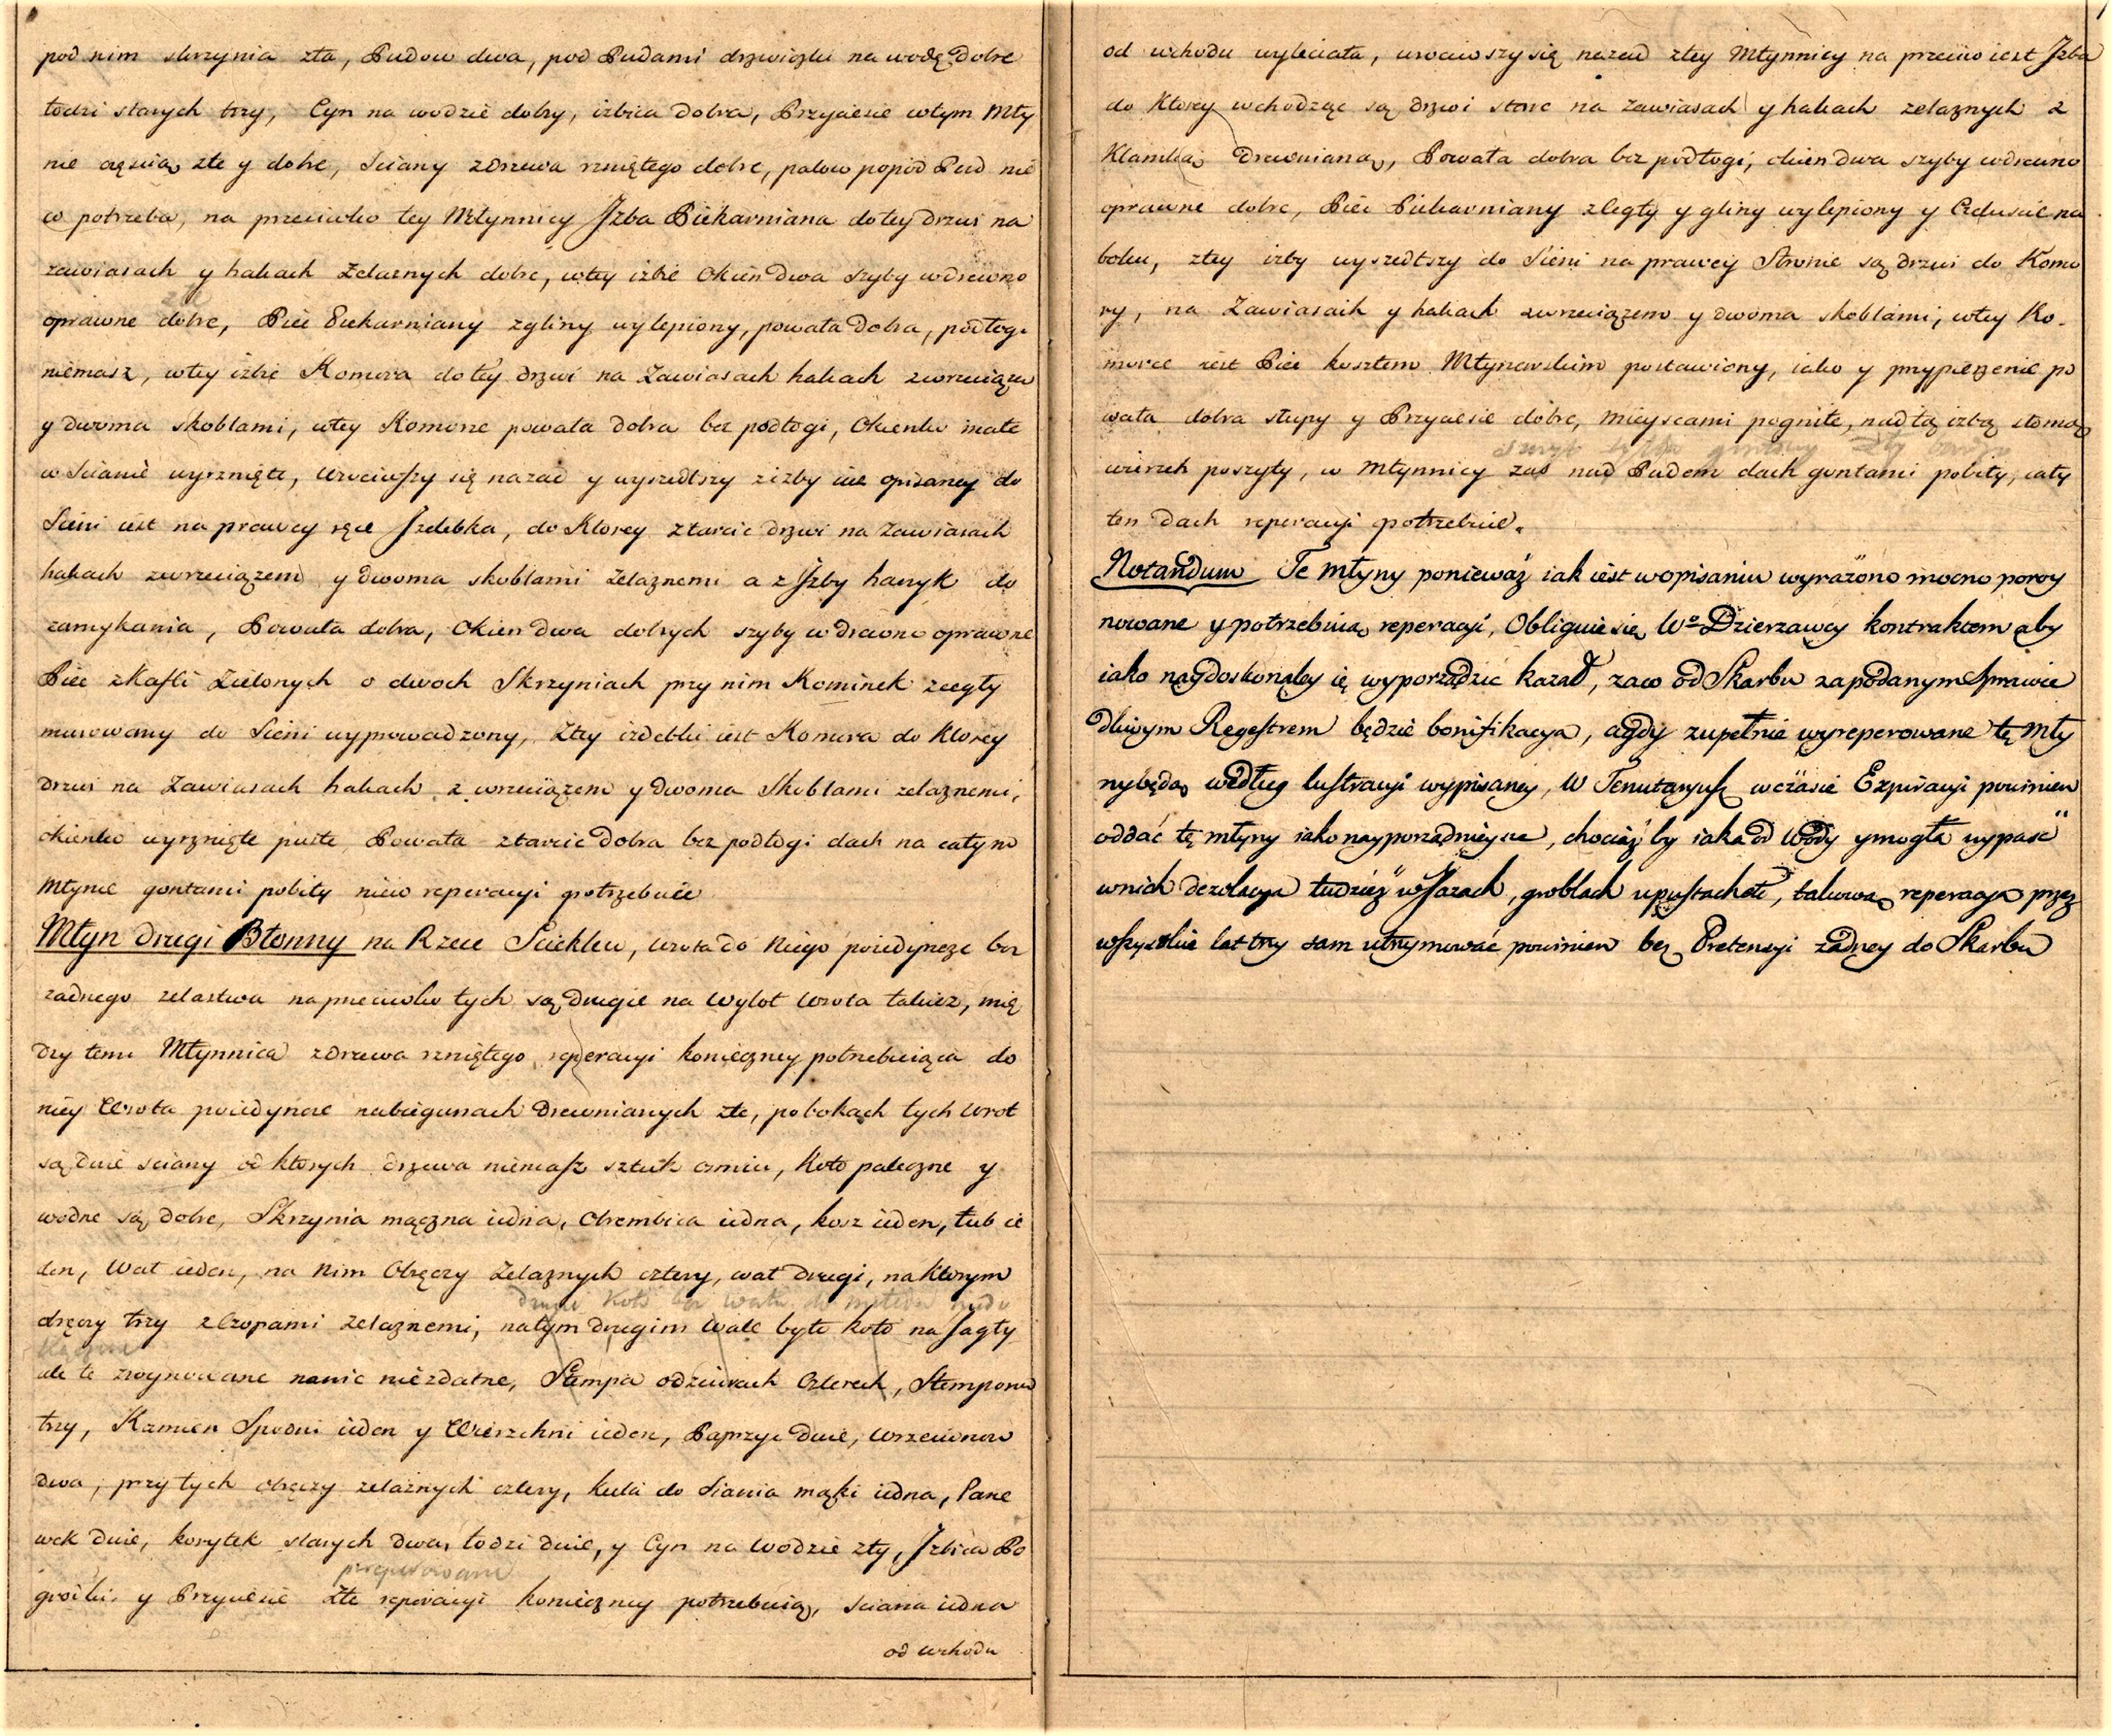 pod nim skrzynia zła, Pudow dwa, pod Pudami drzwiczki na wodę dobre
łodzi starych trzy, Cyn na wodzie dobry, izbica dobra, Przyciesie wtym Mły
nie częścią złe y dobre, Sciany zdrzewa rzniętego dobre, palow popod Pud nie
w potrzeba, na przeciwko tey Młynnicy Jzba Piekarniana do tey drzwi na
zawiasach y hakach Zelaznych dobre, wtey izbie Okien dwa szyby wdrewno
złe
oprawne dobre, Piec Piekarniany zgliny wylepiony, powała dobra, podłogi
niemasz, wtey izbie Komora do tey drzwi na Zawiasach hakach zwrzeciązem
y dwoma skoblami, wtey Komorze powała dobra bez podłogi, Okienko małe
w Scianie wyrznięte, wrociwszy się nazad y wyszedłszy zizby iuz opisaney do
Sieni iest na prawey ręce Jzdebka, do Ktorey ztarcic drzwi na zawiasach
hakach zwrzeciązem y dwoma skoblami Zelaznemi a z Jzby haczyk do
zamykania, Powała dobra, Okien dwa dobrych szyby w drewno oprawne
Piec zKafli Zielonych o dwoch Skrzyniach przy nim Kominek zcegły
murowany do Sieni wyprowadzony, Ztey izdebki iest Komora do Ktorey
drzwi na Zawiasach hakach z wrzeciązem y dwoma Skoblami zelaznemi,
okienko wyrznięte puste Powała ztarcic dobra bez podłogi dach na całym
Młynie gontami pobity nieco reperacyi potrzebuie
Młyn drugi Błonny na Rzece Sciekłcu, wrota do Niego poiedyncze bez
zadnego zelastwa naprzeciwko tych są drugie na wylot wrota takiez, mię
dzy temi Młynnica zdrzewa rzniętego reperacyi konieczney potrzebuiąca do
niey Wrota poiedyncze nabiegunach drewnianych złe, po bokach tych wrot
są dwie sciany od ktorych drzewa niemasz sztuk osmiu, Koło paleczne y
wodne są dobre, Skrzynia mączna iedna, Obrembica iedna, kosz ieden, łub ie
den, Wał ieden, na Nim Obręczy Zelaznych cztery, wał drugi, na Ktorym
drugie Koło bez wału do
obręczy trzy zCzopami Zelaznemi, natym drugim Wale było koło na Jagły
ale te zruynowane nanic niezdatne, Stempa odziurach Czterech, Stemporow
trzy, Kamien Spodni ieden y Wierzchni ieden, Paprzyc dwie, wrzecionow
dwa, przytych obręczy zelaznych cztery, kula do siania mąki iedna, Pane
wek dwie, korytek starych dwa, łodzi dwie, y Cyn na wodzie zły, Jzbica Po
grodki y Przyciesie złe reperacyi konieczney potrzebuią, sciana iedna
od wschodu
od wschodu wyleciała, wrociwszy się nazad ztey Młynnicy na przeciw iest Jzba
do Ktorey wchodząc są drzwi stare na zawiasach y hakach zelaznych z
Klamką Drewnianą, Powała dobra bez podłogi, okien dwa szyby wdrewno
oprawne dobre, Piec Piekarniany zCegły y gliny wylepiony y na
boku, ztey izby wyszedłszy do Sieni na prawey Stronie są drzwi do Komo
ry, na Zawiasach y hakach zwrzeciązem y dwoma skoblami, wtey Ko-
morce iest Piec kosztem Młynarskim postawiony, iako y przypieczenie po
wała dobra słupy y Przyciesie dobre, mieyscami pogniłe, nad tą izbą słomą
wierzch poszyty, w Młynnicy zas nad Pudem dach gontami pobity, cały
ten dach reperacyi potrzebuie.
Notandum Te młyny ponieważ iak iest wopisaniu wyrażono mocno poroy
nowane y potrzebuią reperacyi, Obliguie się Wo Dzierzawcy kontraktem aby
iako naydoskonaley ie wyporządzic kazał, zaco od Skarbu zapodanym Sprawie
dliwym Regestrem będzie bonifikacya, agdy zupełnie wyreperowane te Mły
ny będą według lustracyi wypisaney, W Tenutaryusz wczasie Expiracyi powinien
oddać te młyny iako nayporządnieysze, chociaż by iaka od Wody ymogła wypaść
wnich dezolacya tudziez w Jazach, groblach upustach etc, takową reperacyą przez
wszystkie lat trzy sam utrzymować powinien bez Pretensyi żadney do Skarbu